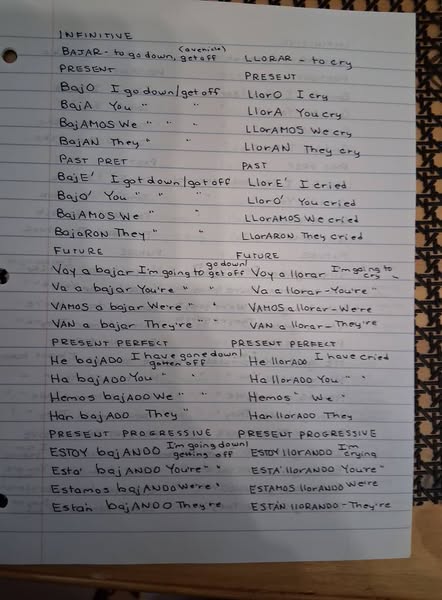 INFINITIVE
(a vehicle)
BAJAR - to go down, get off LLORAR - to cry
PRESENT PRESENT
BajO I go down/get off LlorO I cry
BajA You " " LlorA You cry
BajAMOS We " " LlorAMOS We cry
BajAN They " " LlorAN They cry
PAST PRET PAST
BajE' I got down/got off LlorE' I cried
BajO' You " " " LlorO' You cried
BajAMOS We " " LLorAMOS We cried
BajaRON They " " LlorARON They cried
FUTURE FUTURE
Voy a bajar I'm going to go down/get off Voy a llorar I'm going to cry
Va a bajar You're " " Va a llorar - You're "
VAMOS a bajar We're " " VAMOS a llorar - We're
VAN a bajar They're " " VAN a llorar - They're
PRESENT PERFECT PRESENT PERFECT
He bajADO I have gone down/gotten off He llorADO I have cried
Ha bajADO You " " Ha llorADO You " "
Hemos bajADO We " " Hemos " We "
Han bajADO They " Han llorADO They
PRESENT PROGRESSIVE PRESENT PROGRESSIVE
ESTOY bajANDO I'm going down/getting off ESTOY llorANDO I'm crying
Esta' bajANDO You're " " ESTA' llorANDO You're "
Estamos bajANDO We're " ESTAMOS llorANDO We're
Están bajANDO They're ESTÁN llORANDO - They're